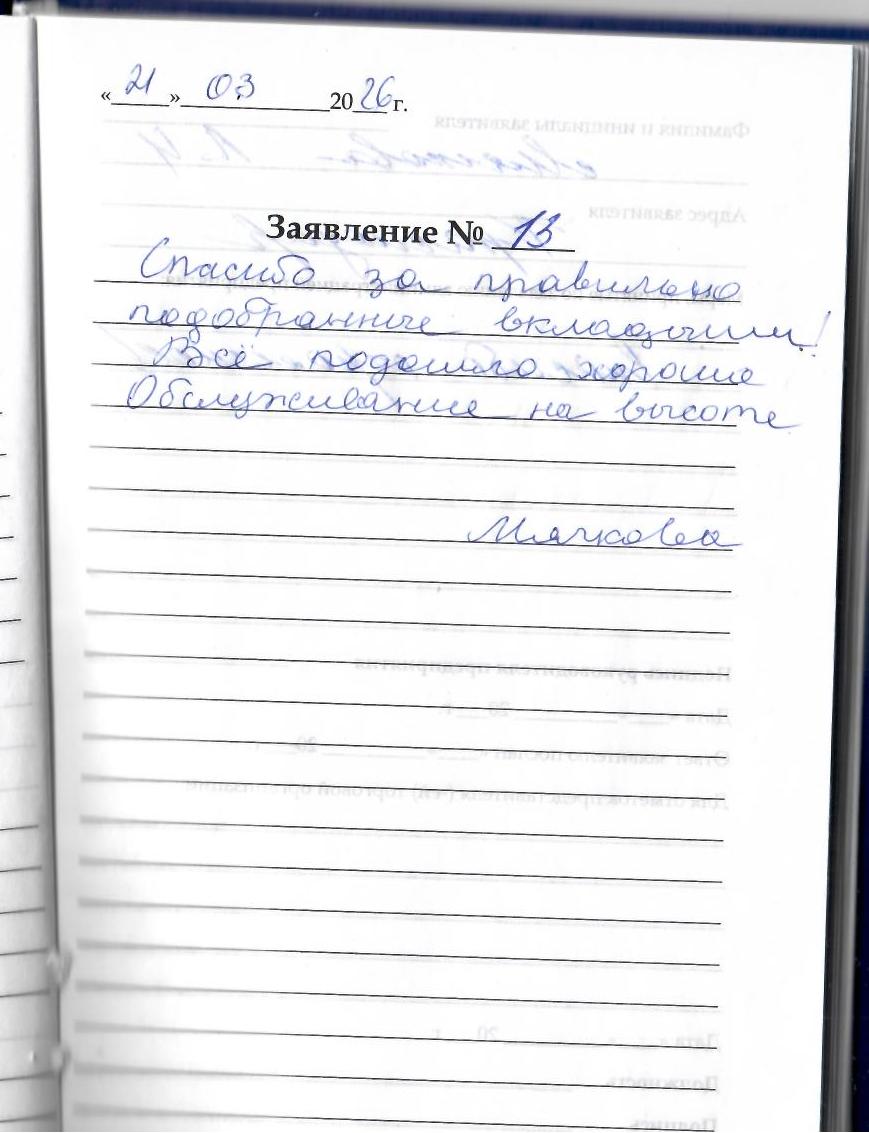 «21» 03 2026 г.
Заявление № 13
Спасибо за правильно
подобранные вкладыши!
Всё подошло хорошо
Обслуживание на высоте
Мячкова